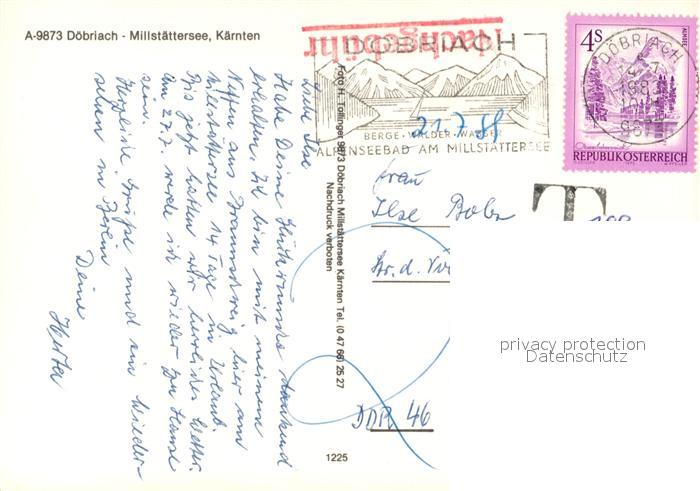 A-9873 Döbriach - Millstättersee, Kärnten
Liebe Ilse
Habe Deine Glückwünsche dankend
erhalten. Ich bin mit meinem
Neffen aus Braunschweig hier am
Millstättersee 14 Tage im Urlaub.
Bis jetzt hatten wir herrliches Wetter.
Am 27.7. werde ich wieder zu Hause
sein.
Herzliche Grüße und ein Wieder-
sehen in
Deine
Herta
Foto H. Tollinger 9873 Döbriach Millstättersee Kärnten Tel. (0 47 66) 25 27
Nachdruck verboten
1225
Nachgebühr
DÖBRIACH
BERGE-WÄLDER-WASSER
ALPENSEEBAD AM MILLSTÄTTERSEE
21.7.88
4S
REPUBLIK ÖSTERREICH
DÖBRIACH
1983
987
T
Frau
Ilse
Str. d.
DDR 46
privacy protection
Datenschutz